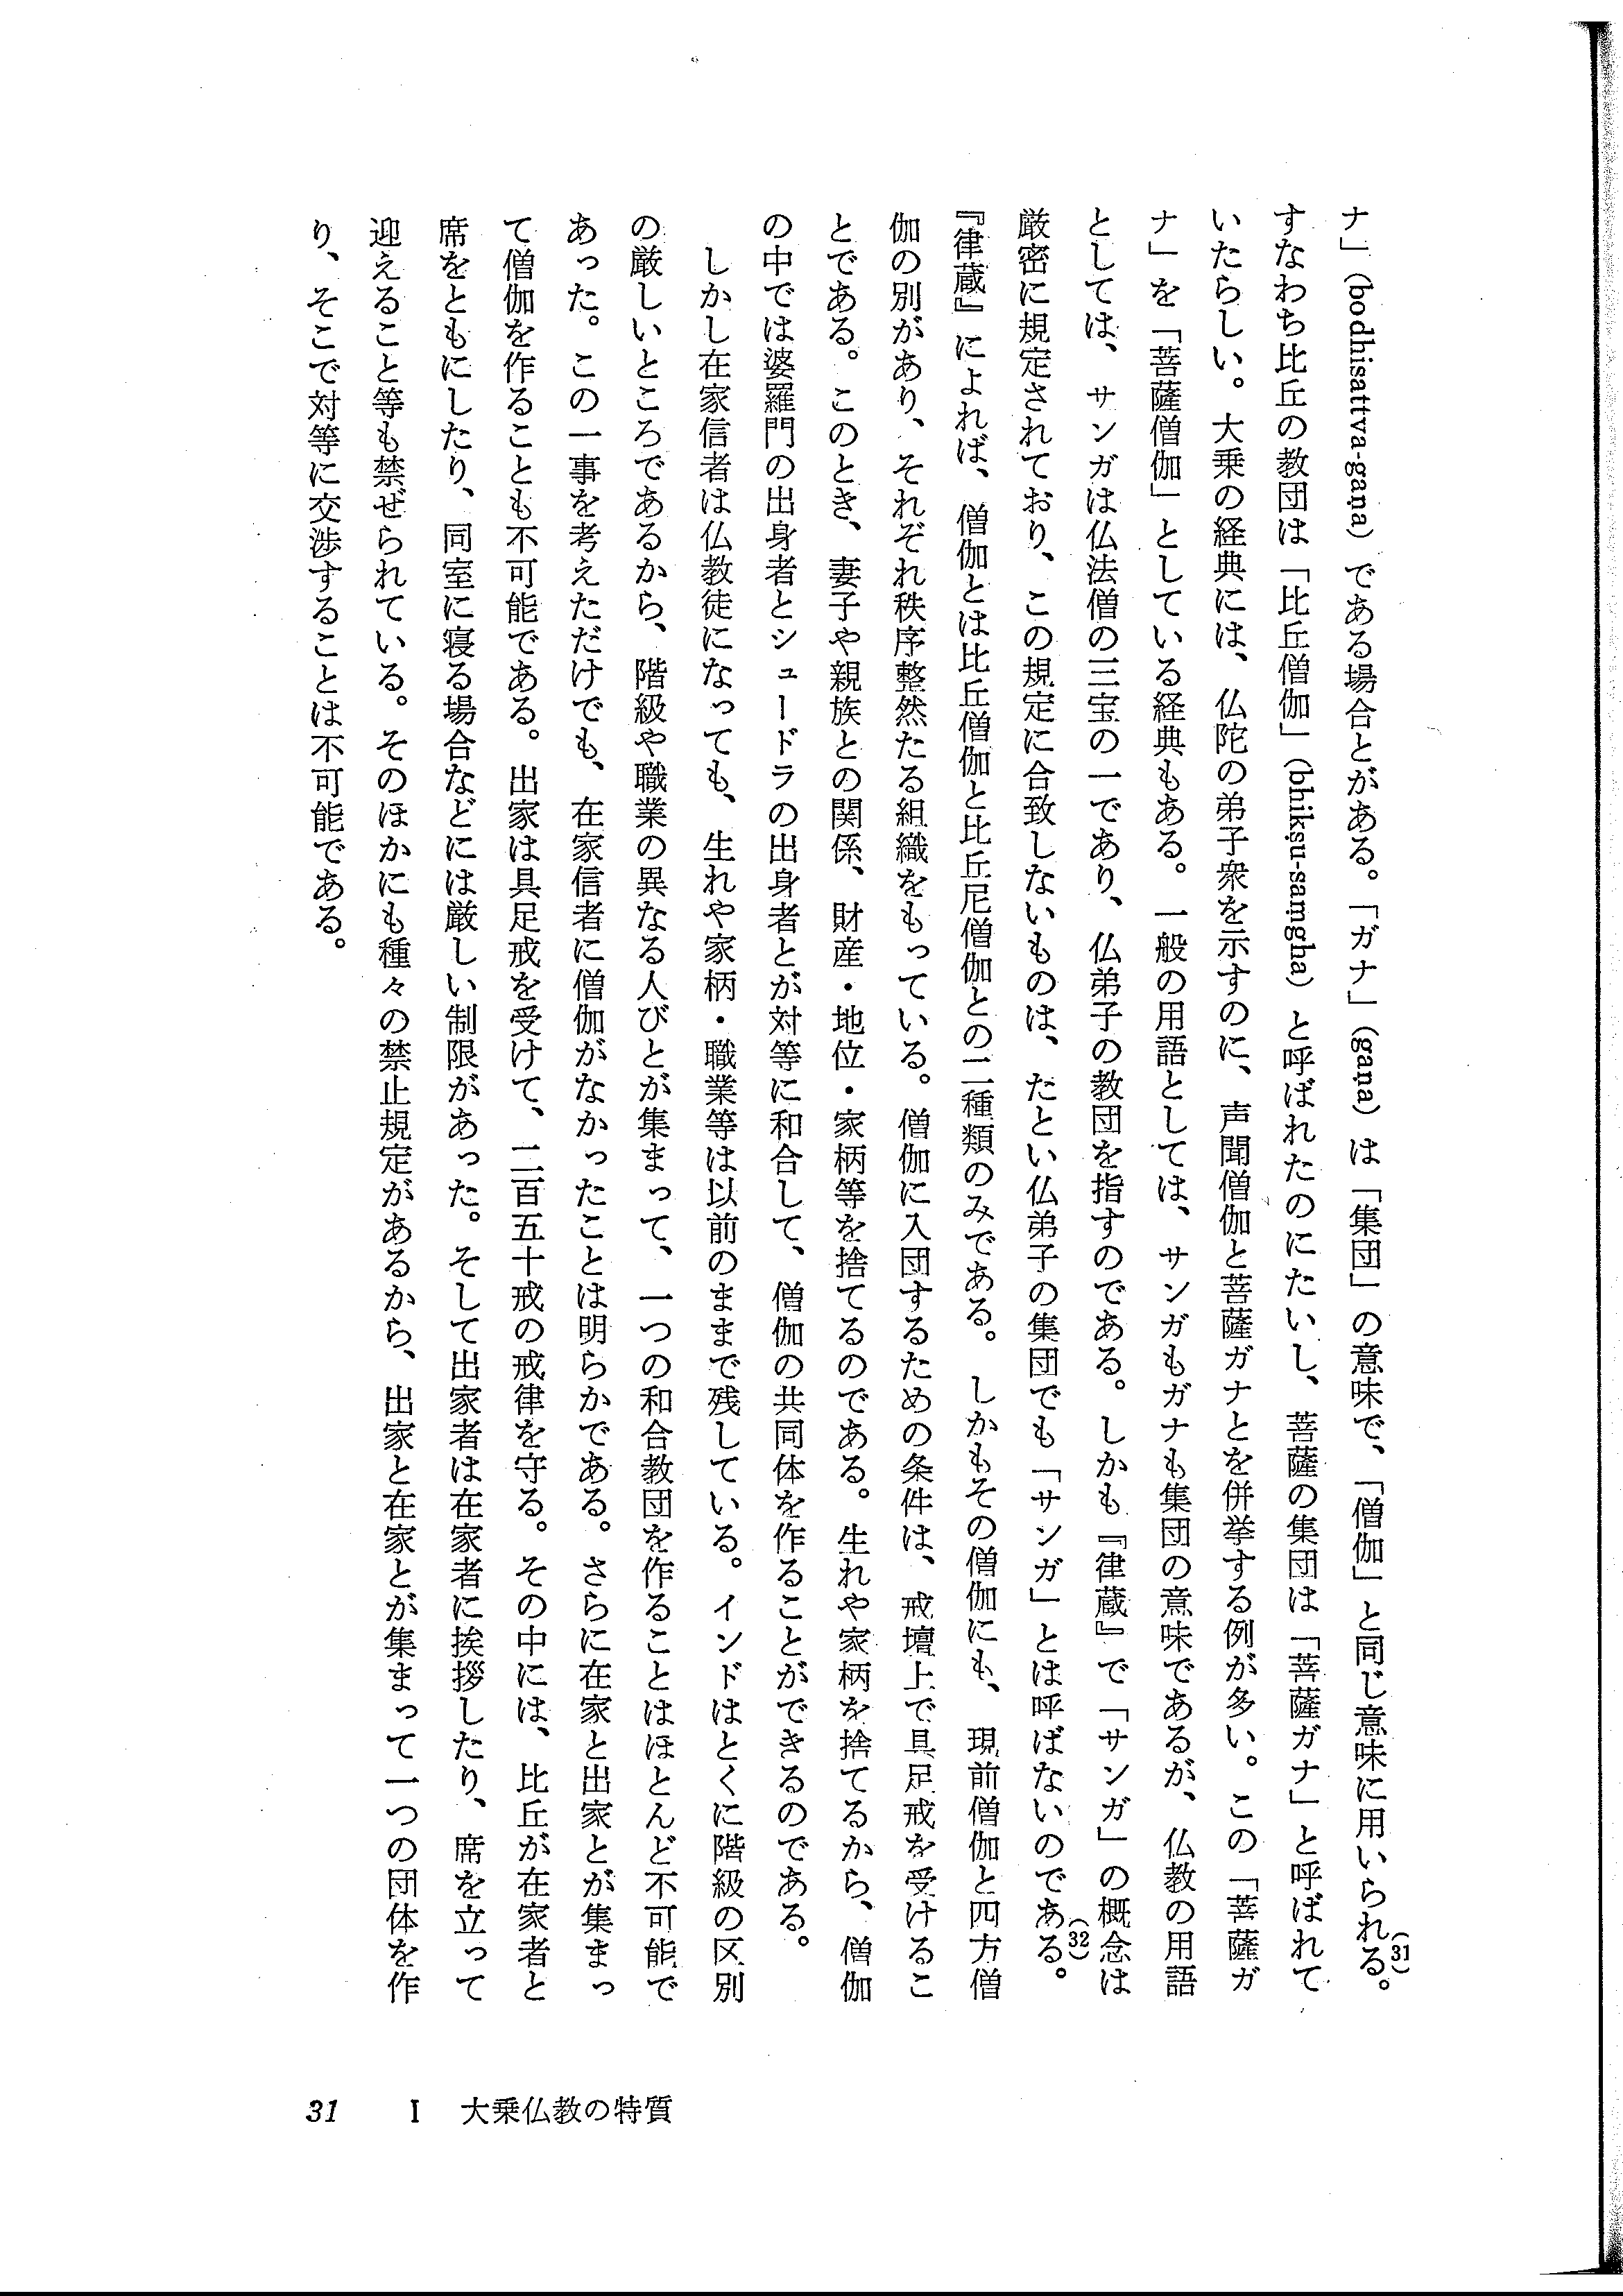 ナ」(bodhisattva-gaṇa)である場合とがある。「ガナ」(gaṇa)は「集団」の意味で、「僧伽」と同じ意味に用いられる。(31)
すなわち比丘の教団は「比丘僧伽」(bhikṣu-saṃgha)と呼ばれたのにたいし、菩薩の集団は「菩薩ガナ」と呼ばれて
いたらしい。大乗の経典には、仏陀の弟子衆を示すのに、声聞僧伽と菩薩ガナとを併挙する例が多い。この「菩薩ガ
ナ」を「菩薩僧伽」としている経典もある。一般の用語としては、サンガもガナも集団の意味であるが、仏教の用語
としては、サンガは仏法僧の三宝の一であり、仏弟子の教団を指すのである。しかも『律蔵』で「サンガ」の概念は
厳密に規定されており、この規定に合致しないものは、たとい仏弟子の集団でも「サンガ」とは呼ばないのである。(32)
『律蔵』によれば、僧伽とは比丘僧伽と比丘尼僧伽との二種類のみである。しかもその僧伽にも、現前僧伽と四方僧
伽の別があり、それぞれ秩序整然たる組織をもっている。僧伽に入団するための条件は、戒壇上で具足戒を受けるこ
とである。このとき、妻子や親族との関係、財産・地位・家柄等を捨てるのである。生れや家柄を捨てるから、僧伽
の中では婆羅門の出身者とシュードラの出身者とが対等に和合して、僧伽の共同体を作ることができるのである。
しかし在家信者は仏教徒になっても、生れや家柄・職業等は以前のままで残している。インドはとくに階級の区別
の厳しいところであるから、階級や職業の異なる人びとが集まって、一つの和合教団を作ることはほとんど不可能で
あった。この一事を考えただけでも、在家信者に僧伽がなかったことは明らかである。さらに在家と出家とが集まっ
て僧伽を作ることも不可能である。出家は具足戒を受けて、二百五十戒の戒律を守る。その中には、比丘が在家者と
席をともにしたり、同室に寝る場合などには厳しい制限があった。そして出家者は在家者に挨拶したり、席を立って
迎えること等も禁ぜられている。そのほかにも種々の禁止規定があるから、出家と在家とが集まって一つの団体を作
り、そこで対等に交渉することは不可能である。
31 I 大乗仏教の特質